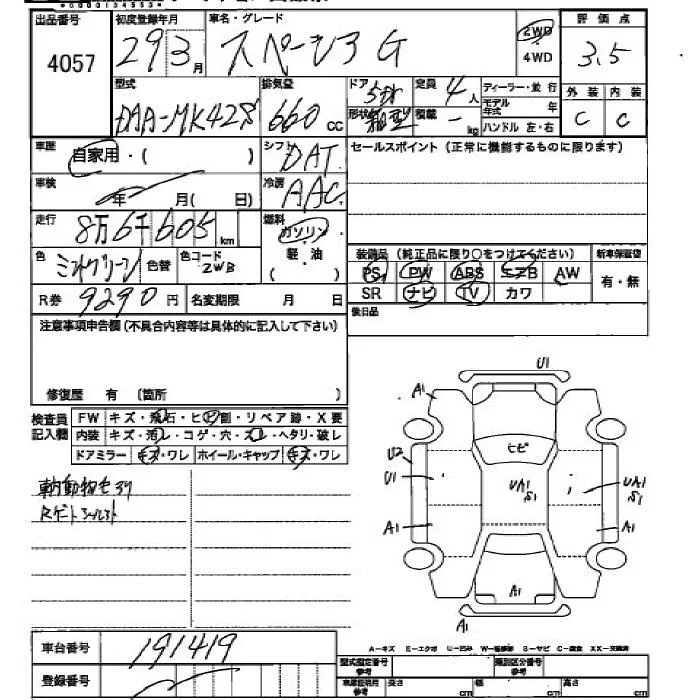 *0000134553*
出品番号 初度登録年月 車名・グレード 評価点
4057 29 3月 スペーシア G 2WD 4WD 3.5
型式 排気量 ドア 5ドア 定員 4人 ディーラー・並行 外装 内装
DAA-MK42S 660cc 形状 箱型 積載 - kg モデル年式 年 ハンドル 左・右 C C
車歴 自家用・( ) シフト DAT セールスポイント (正常に機能するものに限ります)
車検 年 月( 日) 冷房 AAC
走行 8万6千605km 燃料 ガソリン 軽・油 ( )
色 ミントグリーン 色替 色コード ZWB 装備品 (純正品に限り○をつけてください) 新車保証書
PS PW ABS エアB AW 有・無
R券 9290円 名変期限 月 日 SR ナビ TV カワ
注意事項申告欄(不具合内容等は具体的に記入して下さい) 後日品
修復歴 有 (箇所 )
検査員記入欄 FW キズ・飛石・ヒビ割・リペア跡・X要
内装 キズ・汚レ・コゲ・穴・スレ・ヘタリ・破レ
ドアミラー キズ・ワレ ホイール・キャップ キズ・ワレ
U1
A1
ヒビ
U2
U1 UA1 S1 UA1 S1
A1 A1
A1
A1
車内動物毛アリ
Rゲート
車台番号 191419
A-キズ E-エクボ U-凹み W-補修跡 S-サビ C-腐食 XX-交換済
登録番号 型式指定番号 参考 類別区分番号 参考
車庫証明用 参考 長さ cm 幅 cm 高さ cm